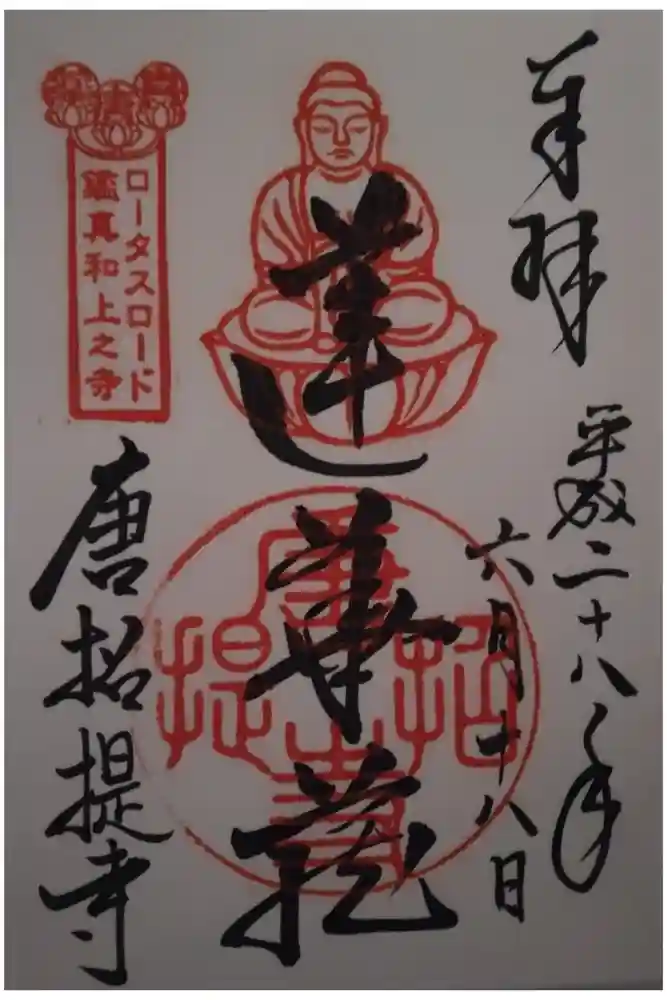 奉拝
平成二十八年
六月十八日
蓮華蔵
唐招提寺
ロータスロード
鑑真和上之寺
唐招提寺